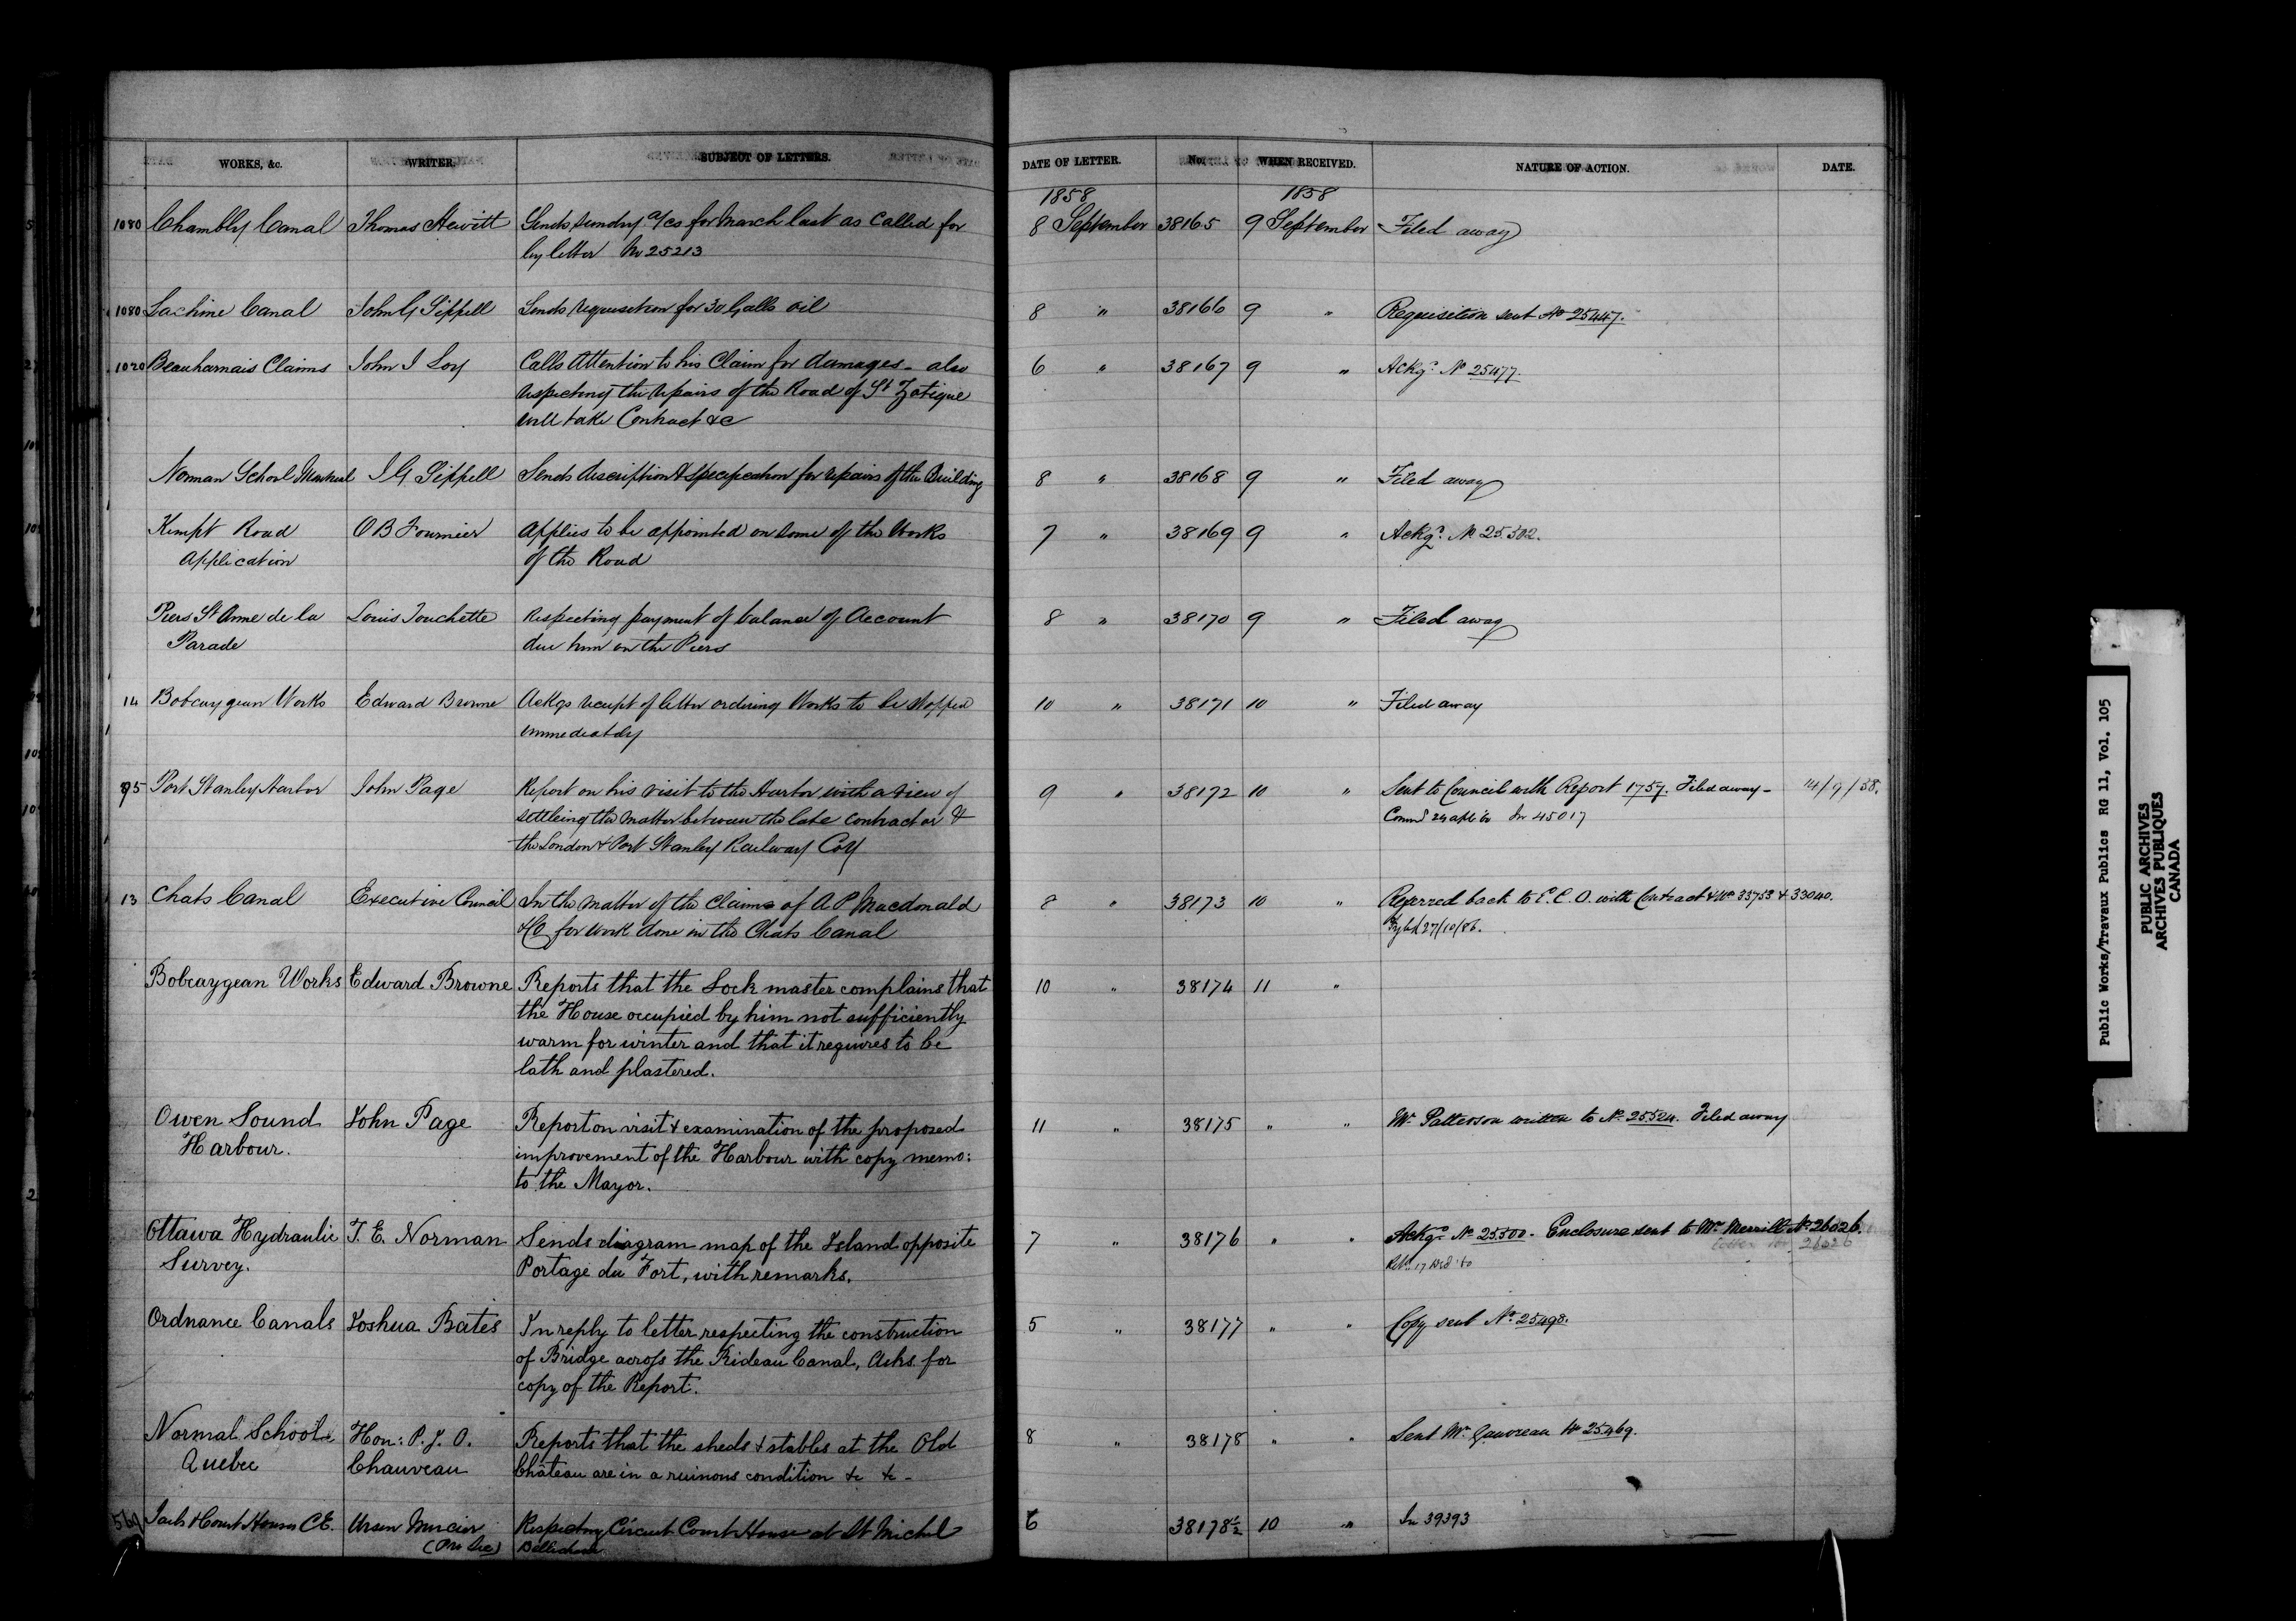 WORKS, &c. WRITER. SUBJECT OF LETTERS. DATE OF LETTER. No. WHEN RECEIVED. NATURE OF ACTION. DATE.
1858 1858
1080 Chambly Canal Thomas Hewitt Sends sundry a/cs for March last as called for 8 September 38165 9 September Filed away
by letter No 25213
1080 Lachine Canal John G Sippell Sends requisition for 30 Galls oil 8 " 38166 9 " Requisition sent No 25447.
1020 Beauharnais Claims John I Loy Calls Attention to his Claim for damages - also 6 " 38167 9 " Ackgd No 25477.
respecting the repairs of the Road of St Zotique
will take Contract &c
Norman School Montreal J G Sippell Sends description & specification for repairs of the Building 8 " 38168 9 " Filed away
Kempt Road O B Fournier Applies to be appointed on some of the Works 7 " 38169 9 " Ackgd No 25502.
Application of the Road
Piers St Anne de la Louis Touchette Respecting payment of balance of Account 8 " 38170 9 " Filed away
Parade due him on the Piers
14 Bobcaygean Works Edward Browne Ackgs receipt of letter ordering Works to be stopped 10 " 38171 10 " Filed away
immediately
95 Port Stanley Harbor John Page Report on his visit to the Harbor with a view of 9 " 38172 10 " Sent to Council with Report 1757. Filed away - 14/9/58.
settleing the matter between the late contractor & In 45017
the London & Port Stanley Railway Coy
13 Chats Canal Executive Council In the matter of the Claims of A P Macdonald 8 " 38173 10 " Referred back to E. C. O. with Contract & Nos 33753 & 33040.
& Co for work done in the Chats Canal 27/10/86.
Bobcaygean Works Edward Browne Reports that the Lock master complains that 10 " 38174 11 "
the House occupied by him not sufficiently
warm for winter and that it requires to be
lath and plastered.
Owen Sound John Page Report on visit & examination of the proposed 11 " 38175 " " Mr Patterson written to No 25524. Filed away
Harbour. improvement of the Harbour with copy memo:
to the Mayor.
Ottawa Hydraulic T. E. Norman Sends diagram map of the Island opposite 7 " 38176 " " Ackgd No 25500 - Enclosure sent to Mr Merrill No 26026.
Survey. Portage du Fort, with remarks. 26026
Ordnance Canals Joshua Bates In reply to letter respecting the construction 5 " 38177 " " Copy sent No 25498.
of Bridge across the Rideau Canal, Asks for
copy of the Report.
Normal School Hon: P. J. O. Reports that the sheds & stables at the Old 8 " 38178 " " Sent Mr Gauvreau No 25469.
Quebec Chauveau Château are in a ruinous condition &c &c -
569 Jails & Court Houses C.E. Ursen Mercier Respecting Circuit Court House at St Michel 6 38178½ 10 " In 39393
Bellechasse
Public Works/Travaux Publics RG 11, Vol. 105
PUBLIC ARCHIVES
ARCHIVES PUBLIQUES
CANADA